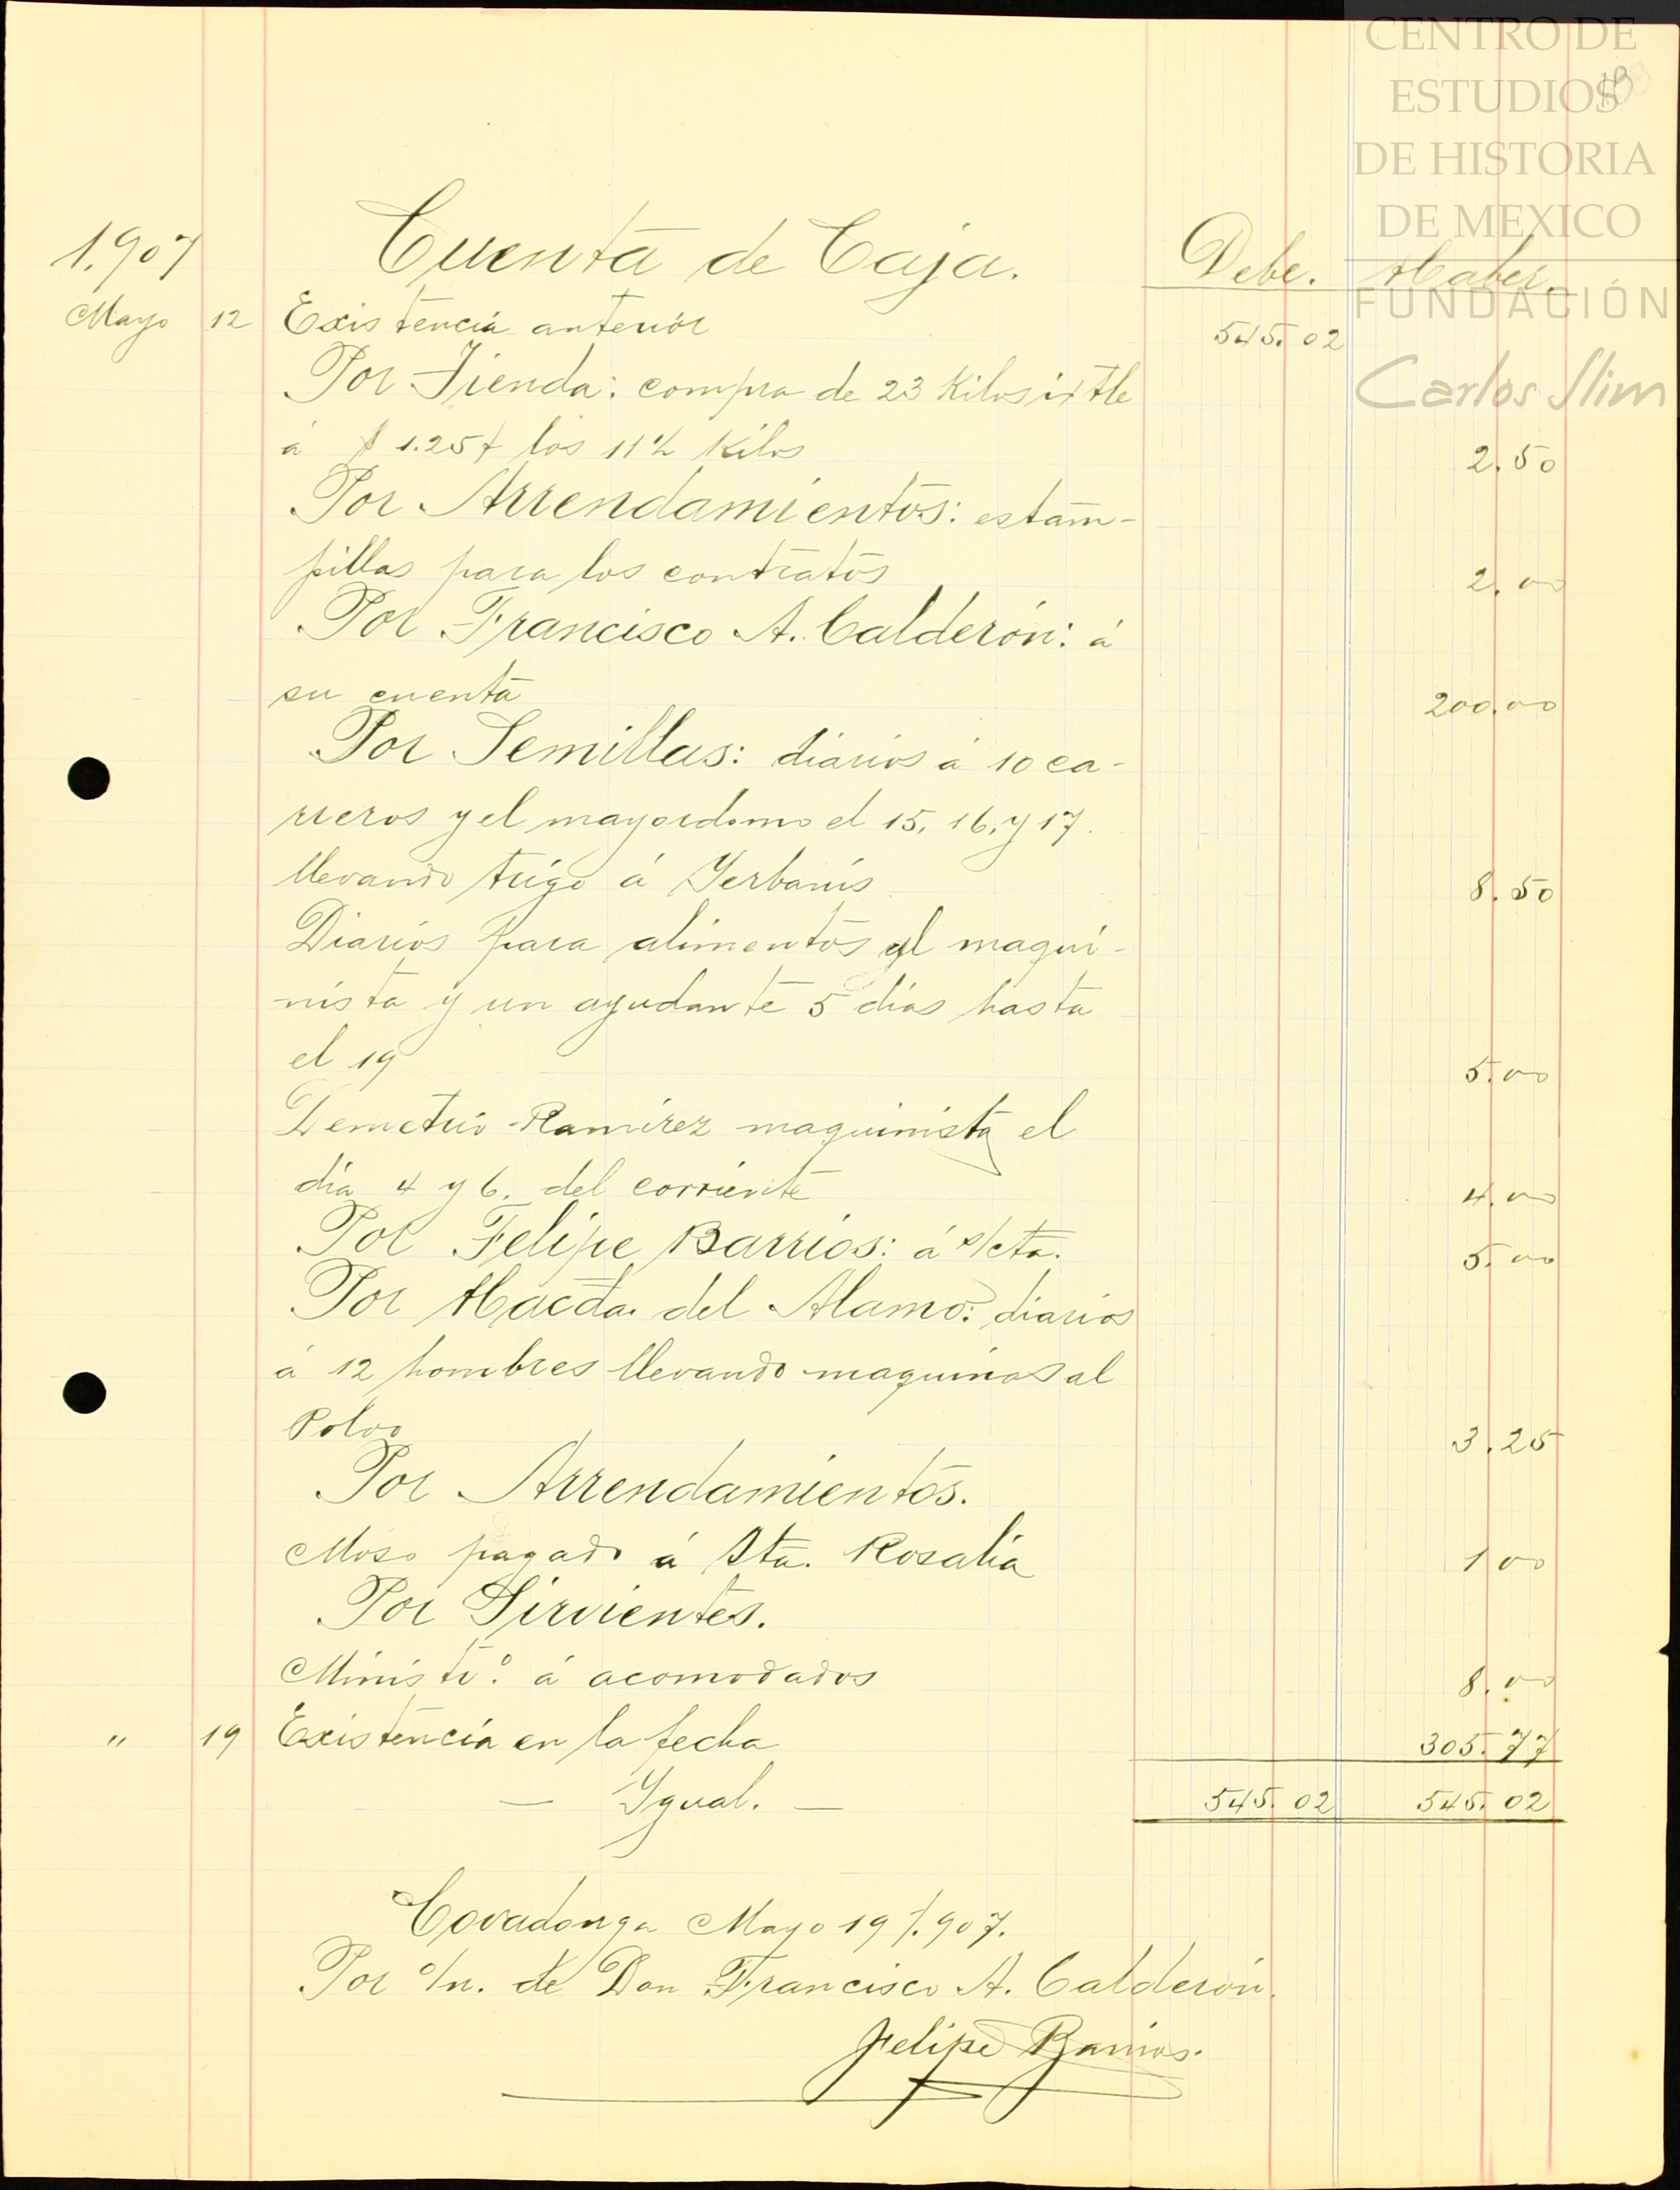 CENTRO DE
ESTUDIOS
DE HISTORIA
DE MEXICO
FUNDACIÓN
Carlos Slim
1.907 Cuenta de Caja. Debe. Haber.
Mayo 12 Existencia anterior 545.02
Por Tienda: compra de 23 Kilos ixtle
á $ 1.25 los 11½ Kilos 2.50
Por Arrendamientos: estam-
pillas para los contratos 2.00
Por Francisco A. Calderón: á
su cuenta 200.00
Por Semillas: diarios á 10 ca-
rreros y el mayordomo el 15, 16, y 17.
llevando trigo á Yerbanís 8.50
Diarios para alimentos al maqui-
nista y un ayudante 5 días hasta
el 19 5.00
Demetrio Ramírez maquinista el
día 4 y 6. del corriente 4.00
Por Felipe Barrios: á s/cta. 5.00
Por Hacda. del Alamo: diarios
á 12 hombres llevando maquinas al
Polvo 3.25
Por Arrendamientos.
Moso pagado á Sta. Rosalía 1 00
Por Sirvientes.
Ministro. á acomodados 8.00
" 19 Existencia en la fecha 305.77
— Ygual. — 545.02 545.02
Covadonga Mayo 19 1.907.
Por o/n. de Don Francisco A. Calderón.
Felipe Barrios.